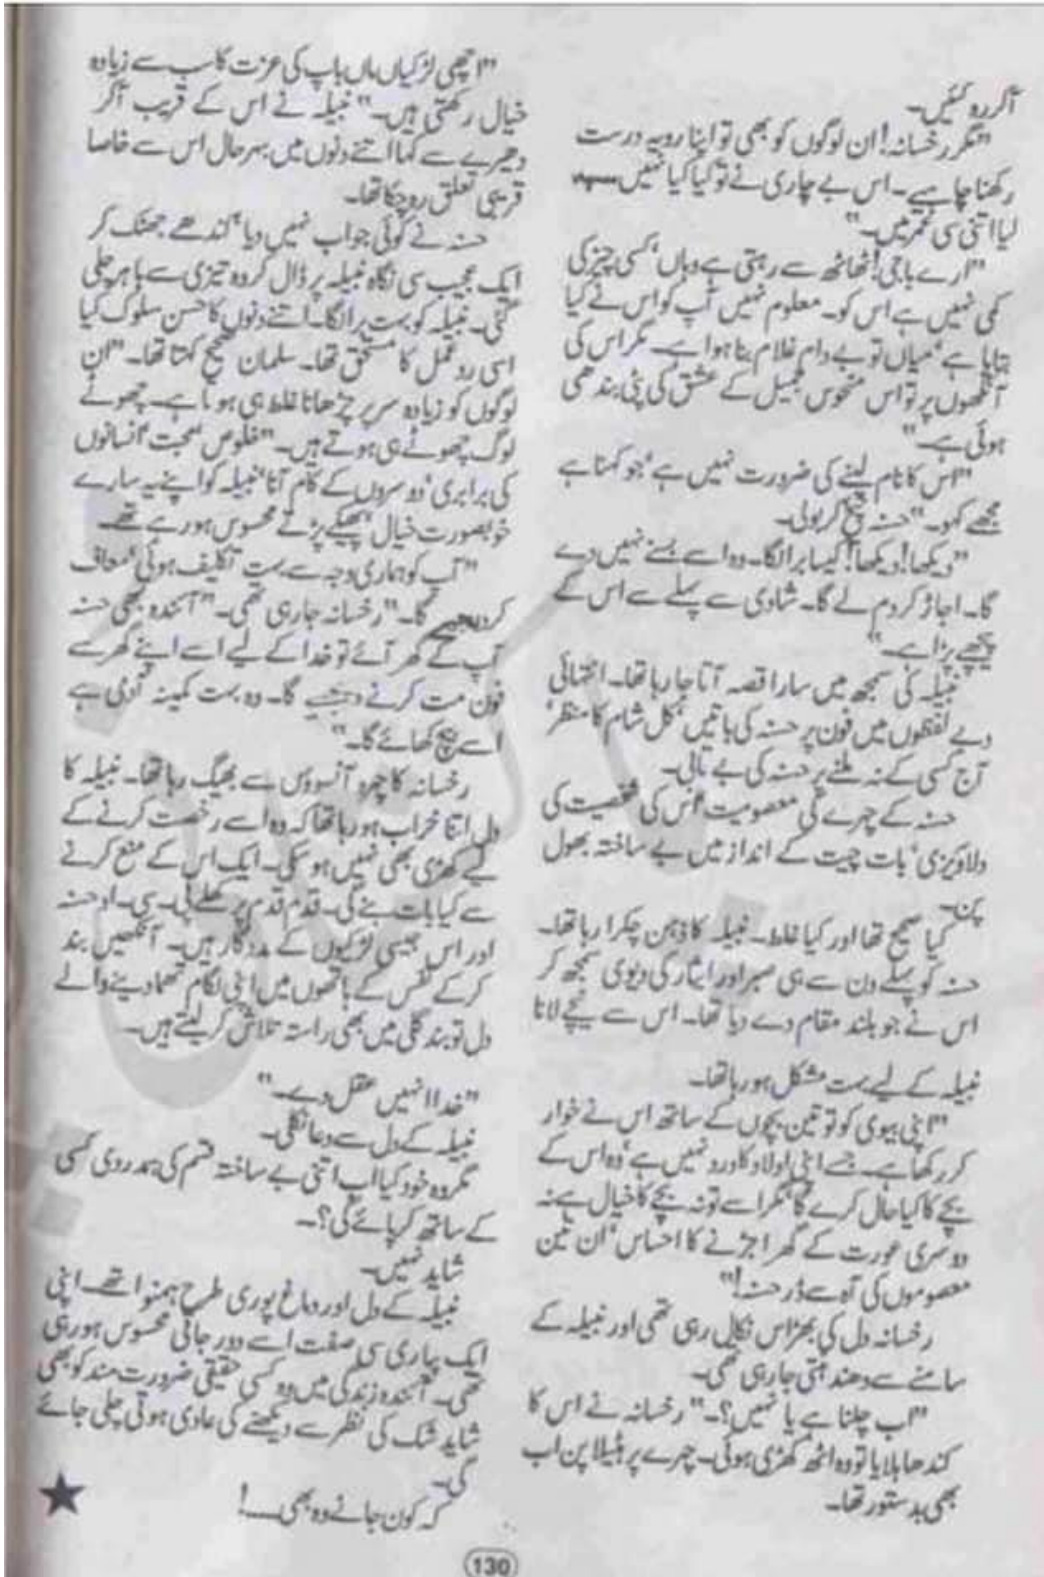 آکر رہ گئیں۔
"مگر رخسانہ! ان لوگوں کو بھی تو اپنا رویہ درست
رکھنا چاہیے۔ اس بے چاری نے تو کیا کیا نہیں
لیا اتنی سی عمر میں۔"
"ارے باجی! ٹھاٹھ سے رہتی ہے وہاں، کسی چیز کی
کمی نہیں ہے اس کو۔ معلوم نہیں آپ کو اس نے کیا
بتایا ہے، میاں تو بے دام غلام بنا ہوا ہے۔ مگر اس کی
آنکھوں پر تو اس منحوس جمیل کے عشق کی پٹی بندھی
ہوئی ہے۔"
"اس کا نام لینے کی ضرورت نہیں ہے، جو کہنا ہے
مجھے کہو۔" حسنہ چیخ کر بولی۔
"دیکھا! دیکھا! کیسا برا لگا۔ وہ اسے بسنے نہیں دے
گا۔ اجاڑ کر دم لے گا۔ شادی سے پہلے سے اس کے
پیچھے پڑا ہے۔"
نبیلہ کی سمجھ میں سارا قصہ آتا جا رہا تھا۔ انتہائی
دبے لفظوں میں فون پر حسنہ کی باتیں، کل شام کا منظر،
آج کسی کے نہ ملنے پر حسنہ کی بے تابی۔
حسنہ کے چہرے کی معصومیت، اس کی شخصیت کی
دلاویزی، بات چیت کے انداز میں بے ساختہ بھول
پن۔
کیا صحیح تھا اور کیا غلط۔ نبیلہ کا ذہن چکرا رہا تھا۔
حسنہ کو پہلے دن سے ہی صبر اور ایثار کی دیوی سمجھ کر
اس نے جو بلند مقام دے دیا تھا۔ اس سے نیچے لانا
نبیلہ کے لیے بہت مشکل ہو رہا تھا۔
"اپنی بیوی کو تو تین بچوں کے ساتھ اس نے خوار
کر رکھا ہے۔ جسے اپنی اولاد کا درد نہیں ہے، وہ اس کے
بچے کا کیا حال کرے گا، مگر اسے تو نہ بچے کا خیال ہے نہ
دوسری عورت کے گھر اجڑنے کا احساس، ان تین
معصوموں کی آہ سے ڈر حسنہ!"
رخسانہ دل کی بھڑاس نکال رہی تھی اور نبیلہ کے
سامنے سے دھند ہٹتی جا رہی تھی۔
"اب چلنا ہے یا نہیں؟۔" رخسانہ نے اس کا
کندھا ہلایا تو وہ اٹھ کھڑی ہوئی۔ چہرے پر ہٹیلا پن اب
بھی بدستور تھا۔
"اچھی لڑکیاں ماں باپ کی عزت کا سب سے زیادہ
خیال رکھتی ہیں۔" نبیلہ نے اس کے قریب آکر
دھیرے سے کہا اتنے دنوں میں بہرحال اس سے خاصا
قریبی تعلق رہ چکا تھا۔
حسنہ نے کوئی جواب نہیں دیا، کندھے جھٹک کر
ایک عجیب سی نگاہ نبیلہ پر ڈال کر وہ تیزی سے باہر چلی
گئی۔ نبیلہ کو بہت برا لگا۔ اتنے دنوں کا حسن سلوک کیا
اسی رد عمل کا مستحق تھا۔ سلمان صحیح کہتا تھا۔ "ان
لوگوں کو زیادہ سر پر چڑھانا غلط ہی ہوتا ہے۔ چھوٹے
لوگ چھوٹے ہی ہوتے ہیں۔" خلوص، محبت، انسانوں
کی برابری، دوسروں کے کام آنا، نبیلہ کو اپنے یہ سارے
خوبصورت خیال، پھیکے پڑتے محسوس ہو رہے تھے۔
"آپ کو ہماری وجہ سے بہت تکلیف ہوئی، معاف
کردیجیے گا۔" رخسانہ جا رہی تھی۔ "آئندہ بھی حسنہ
آپ کے گھر آئے تو خدا کے لیے اسے اپنے گھر سے
فون مت کرنے دیجیے گا۔ وہ بہت کمینہ آدمی ہے
اسے بیچ کھائے گا۔"
رخسانہ کا چہرہ آنسوؤں سے بھیگ رہا تھا۔ نبیلہ کا
دل اتنا خراب ہو رہا تھا کہ وہ اسے رخصت کرنے کے
لیے کھڑی بھی نہیں ہو سکی۔ ایک اس کے منع کرنے
سے کیا بات بنے گی۔ قدم قدم پر کھلے پی۔سی۔او حسنہ
اور اس جیسی لڑکیوں کے مددگار ہیں۔ آنکھیں بند
کرکے نفس کے ہاتھوں میں اپنی لگام تھما دینے والے
دل تو بند گلی میں بھی راستہ تلاش کر لیتے ہیں۔
"خدا انہیں عقل دے۔"
نبیلہ کے دل سے دعا نکلی۔
مگر وہ خود کیا اب اتنی بے ساختہ قسم کی ہمدردی کسی
کے ساتھ کر پائے گی؟۔
شاید نہیں۔
نبیلہ کے دل اور دماغ پوری طرح ہمنوا تھے۔ اپنی
ایک پیاری سی صفت اسے دور جاتی محسوس ہو رہی
تھی۔ آئندہ زندگی میں وہ کسی حقیقی ضرورت مند کو بھی
شاید شک کی نظر سے دیکھنے کی عادی ہوتی چلی جائے
گی۔
کہ کون جانے وہ بھی۔۔۔!
130